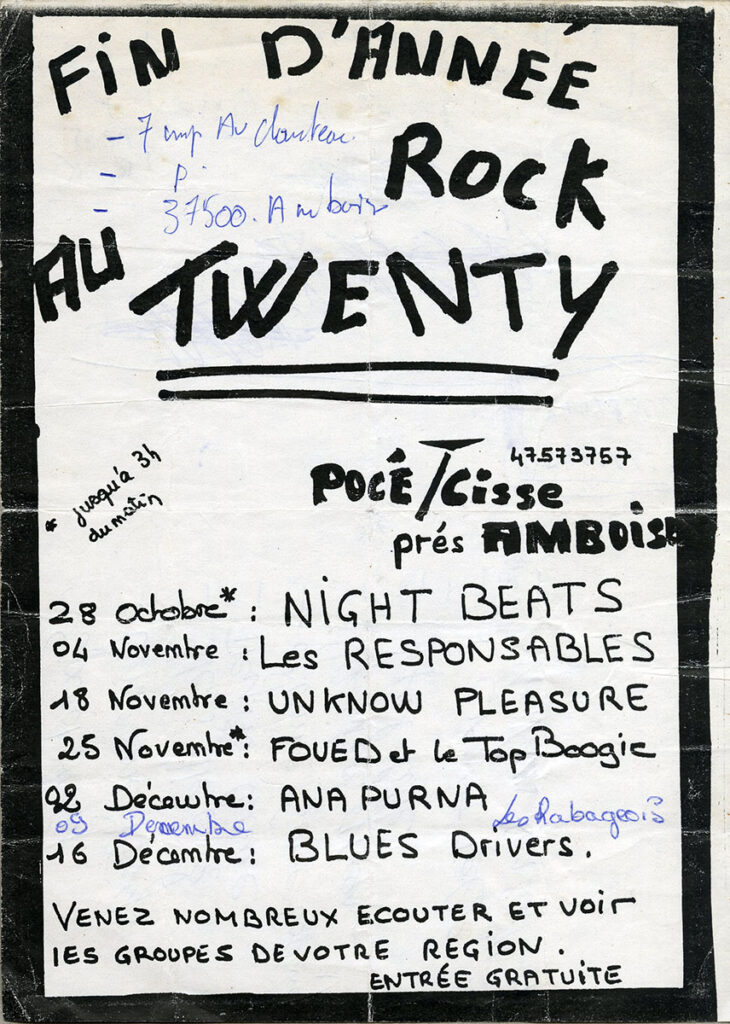 FIN D'ANNEÉ
- 7 imp Au
- P.
- 37500. Amboise
ROCK
AU TWENTY
* jusqu'à 3h
du matin
47573757
POCÉ / Cisse
prés AMBOISE
28 octobre* : NIGHT BEATS
04 Novembre : Les RESPONSABLES
18 Novembre : UNKNOW PLEASURE
25 Novembre* : FOUED et le Top Boogie
02 Décembre : ANAPURNA
09 Décembre Les Rabageois
16 Décembre : BLUES Drivers.
VENEZ NOMBREUX ECOUTER ET VOIR
lES GROUPES DE VOTRE REGION.
ENTRÉE GRATUITE